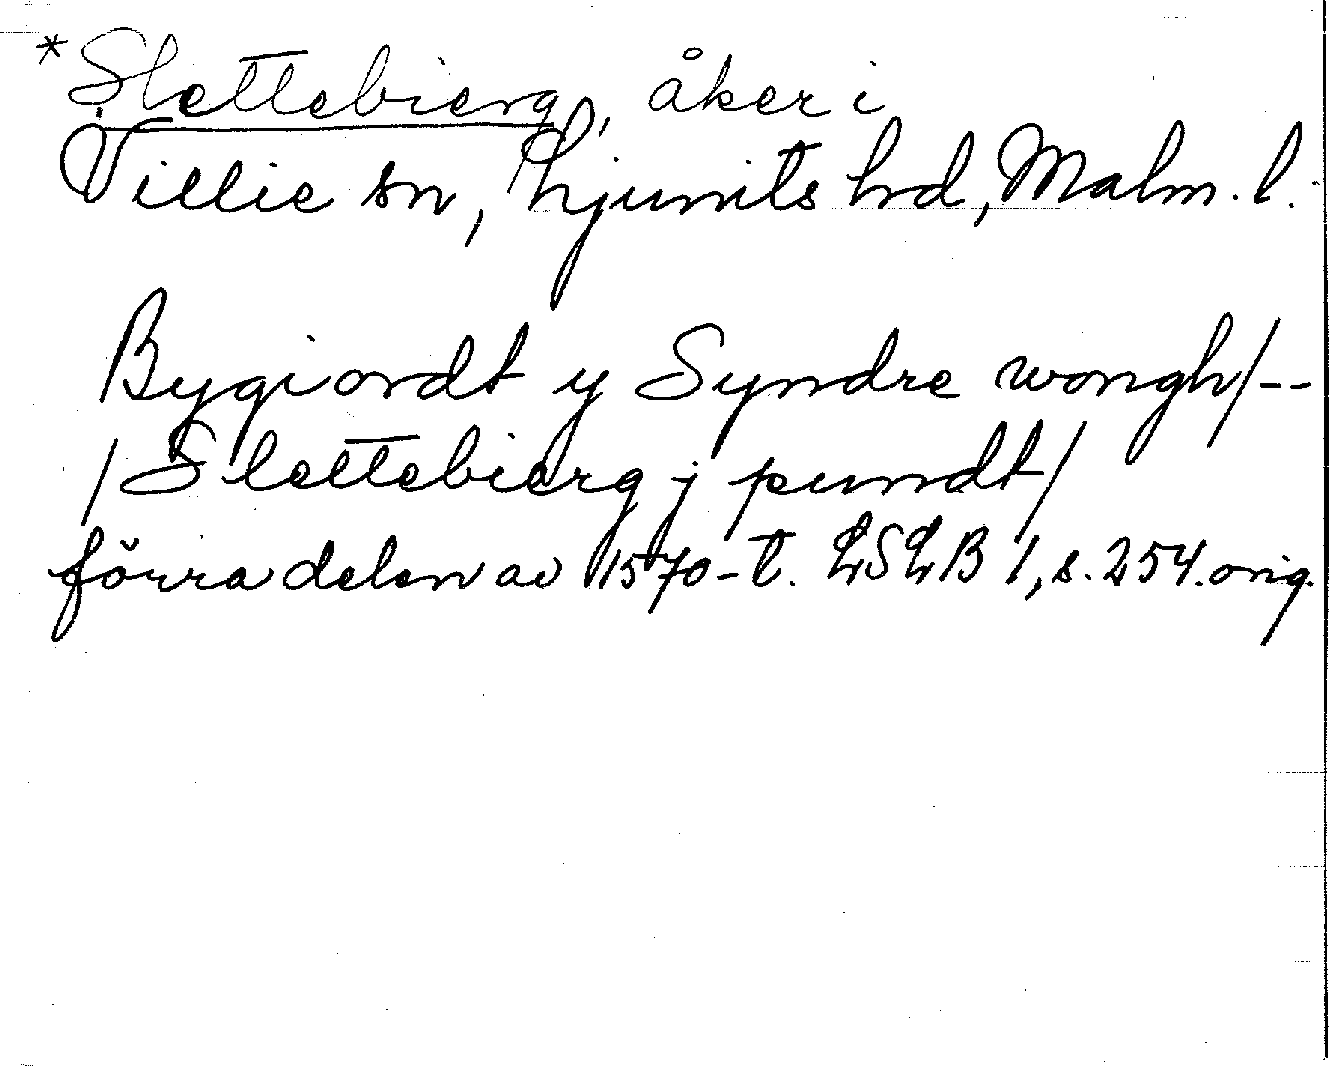 *Slettebierg, åker i
Villie sn, Ljunits hd, Malm. l.
Bygiordt y Syndre wongh/--
/Slettebierg j pundt/
förra delen av 1570-t. LSLB 1, s. 254. orig.